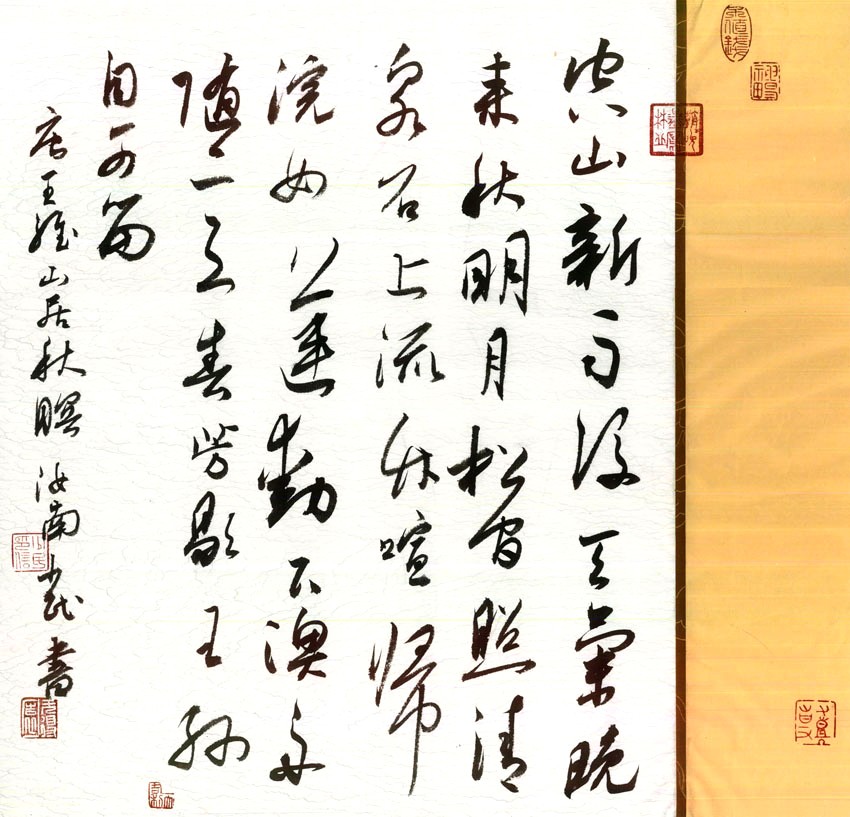 空山新雨後天氣晚
来秋明月松間照清
泉石上流竹喧歸
浣女蓮動下漁舟
随意春芳歇王孫
自可留
唐王維山居秋暝 汝南 書